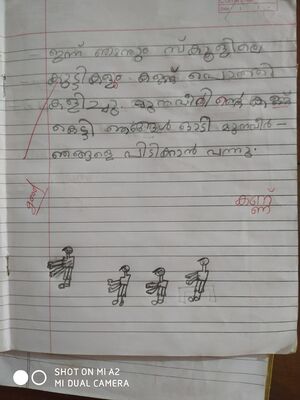 ഇന്ന് ഞാനും സ്കൂളിലെ
കുട്ടികളും കണ്ണ് പൊത്തി
കളിച്ചു. മുനവീറിന്റെ കണ്ണ്
കെട്ടി ഞങ്ങൾ ഓടി മുനവീർ-
ഞങ്ങളെ പിടിക്കാൻ വന്നു.
കണ്ണ്
SHOT ON MI A2
MI DUAL CAMERA